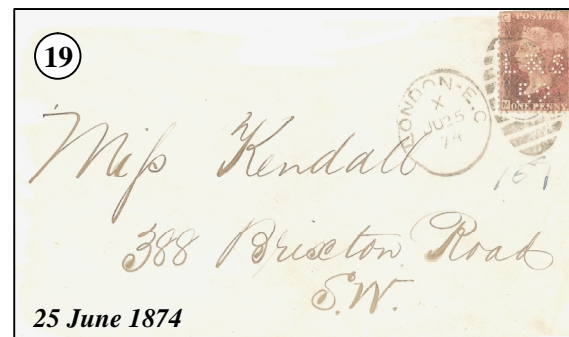 19
C POSTAGE
L.&S
M ONE PENNY
LONDON-E.C
X
JU 25
74
Miſs Kendall
167
388 Brixton Road
S.W.
25 June 1874